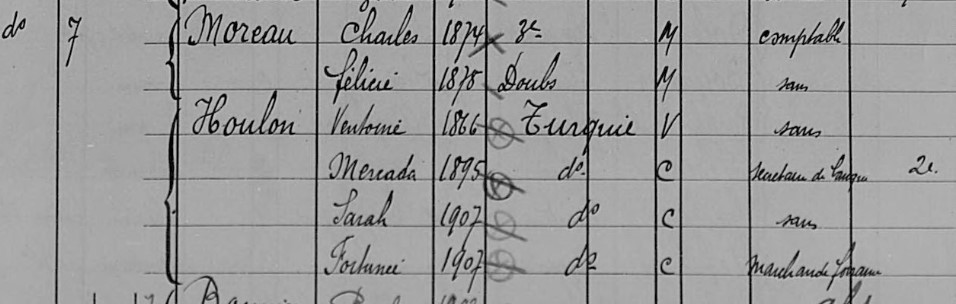 do 7 Moreau Charles 1874 3e M comptable
Félicie 1878 Doubs M sans
Houlon Ventouré 1866 Turquie V sans
Mercada 1895 do. C de 2e.
Sarah 1907 do C sans
Fortunée 1907 do C marchande foraine